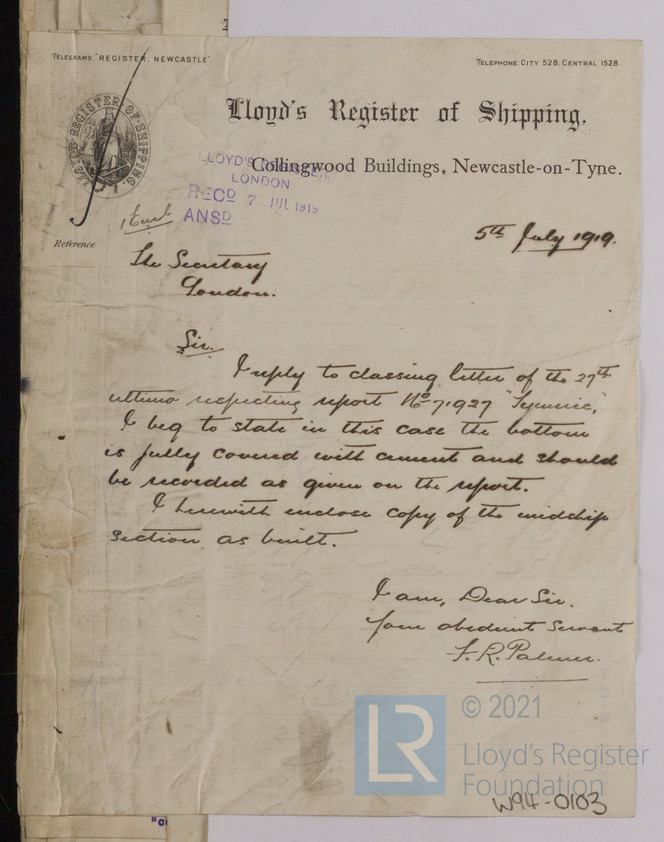 TELEGRAMS, "REGISTER, NEWCASTLE"
TELEPHONE: CITY 528, CENTRAL 1528.
LLOYD'S REGISTER OF SHIPPING.
Lloyd's Register of Shipping.
Collingwood Buildings, Newcastle-on-Tyne.
LLOYD'S REGISTER,
LONDON
RECD 7 JUL 1919
ANSD
1 Encl
Reference
5th July 1919.
The Secretary
London.
Sir.
I reply to classing letter of the 27th
ultimo respecting report No 71927
I beg to state in this case the bottom
is fully covered with cement and should
be recorded as given on the report.
I herewith enclose copy of the midship
section as built.
I am, Dear Sir.
Your obedient Servant
F. R. Palmer.
LR
© 2021
Lloyd's Register
Foundation
W94-0103